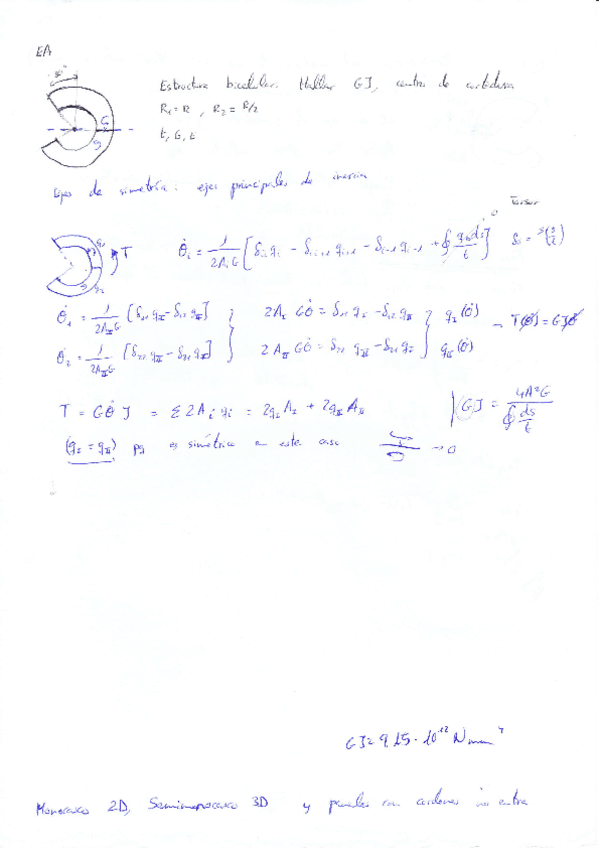 EA
Estructura bicelular. Hallar GJ, centro de cortadura
R₁ = R , R₂ = R/2
t, G, E
Ejes de simetría: ejes principales de inercia
T θ̇ᵢ = 1/(2AᵢG) [δᵢᵢ qᵢ − δᵢ,ᵢ₊₁ qᵢ₊₁ − δᵢ,ᵢ₋₁ qᵢ₋₁ + ∮ q₀ ds/t] 0
θ̇₁ = 1/(2A_I G) [δ₁₁ q_I − δ₁₂ q_II] } 2A_I Gθ̇ = δ₁₁ q_I − δ₁₂ q_II } q_I(θ̇) → T(θ̇) = GJθ̇
θ̇₂ = 1/(2A_II G) [δ₂₂ q_II − δ₂₁ q_I] } 2A_II Gθ̇ = δ₂₂ q_II − δ₂₁ q_I } q_II(θ̇)
T = Gθ̇ J = Σ 2Aᵢ qᵢ = 2q_I A_I + 2q_II A_II GJ = 4A²G / ∮ ds/t
(q_I = q_II) pq es simétrico en este caso → 0
GJ = 9,15 · 10⁻¹² N mm
Monocasco 2D, Semimonocasco 3D y paneles con cordones no entra